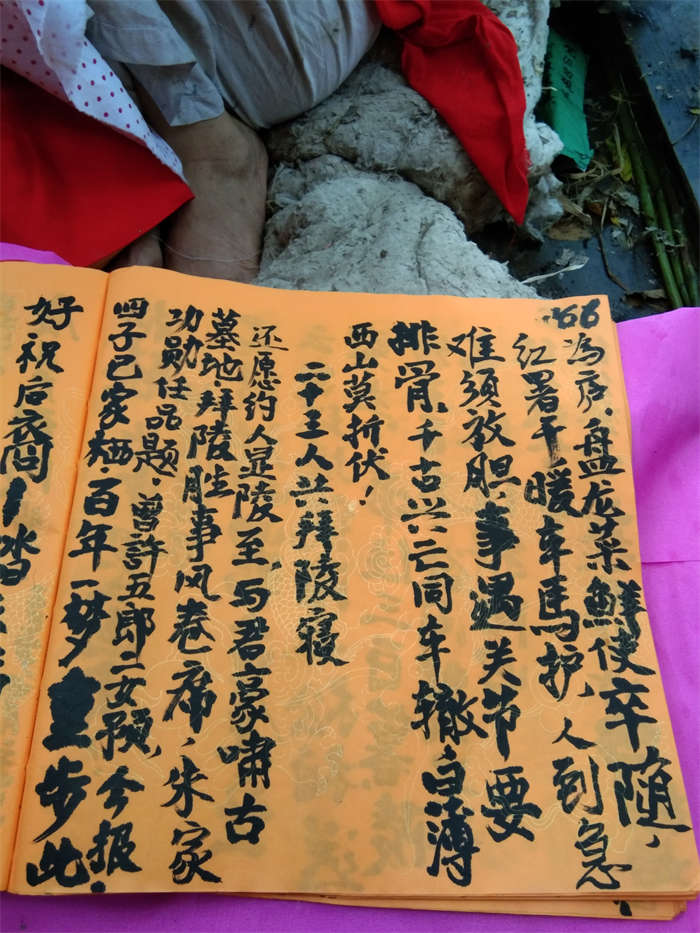 66
盘龙菜鲜使卒随,
红署干暖车马护,人到急
难须放胆,事遇关节要
排骨,千古兴亡同车辙,白薄
西山莫折伏!
二十三人共拜陵寝
还愿约人显陵至,与君豪啸古
墓地,拜陵胜事风卷席,朱家
功勋任品题,曾許五郎一女预,今报
四子已家栖,百年一梦重步此,
好祝后裔!踏